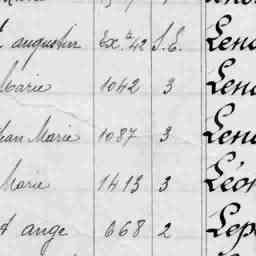 augustin Ex.te 42 S.E. Len
Marie 1042 3 Len
Jean Marie 1087 3 Len
Marie 1413 3 Léon
ange 668 2 Lep